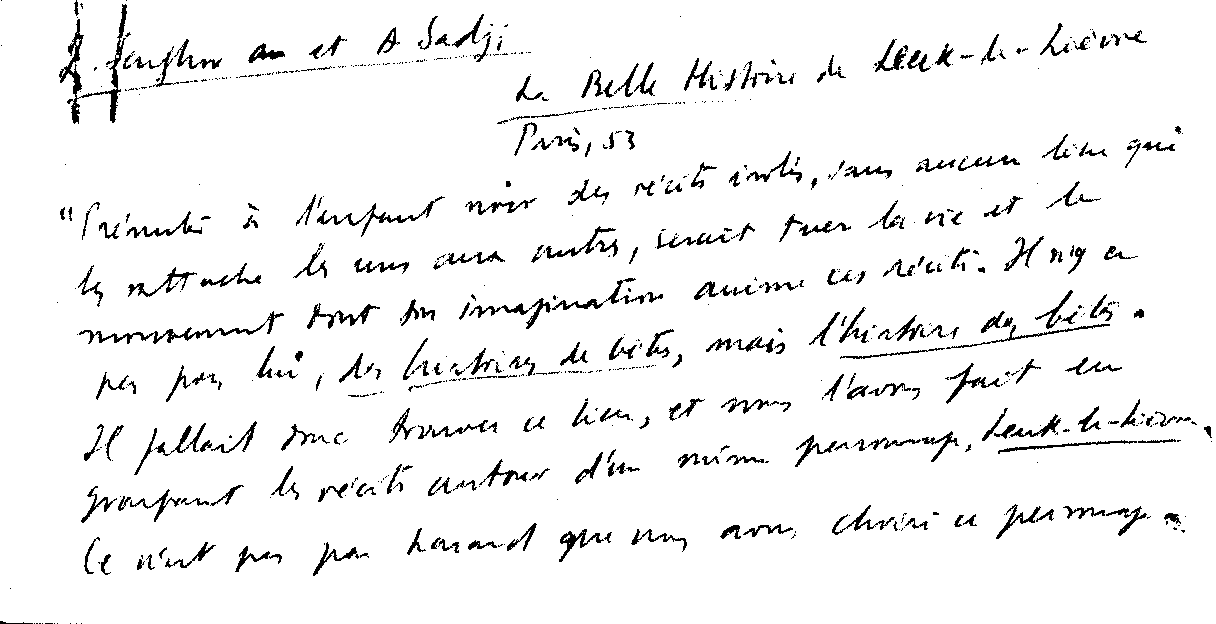 L. Senghor et A Sadji
La Belle Histoire de Leuk-le-Lièvre
Paris, 53
"Présenter à l'enfant noir des récits isolés, sans aucun lien qui
les rattache les uns aux autres, serait tuer la vie et le
mouvement dont son imagination anime ces récits. Il n'y a
pas pour lui, des histoires de bêtes, mais l'histoire des bêtes.
Il fallait donc trouver ce lien, et nous l'avons fait en
groupant les récits autour d'un même personnage, Leuk-le-Lièvre.
Ce n'est pas par hasard que nous avons choisi ce personnage.